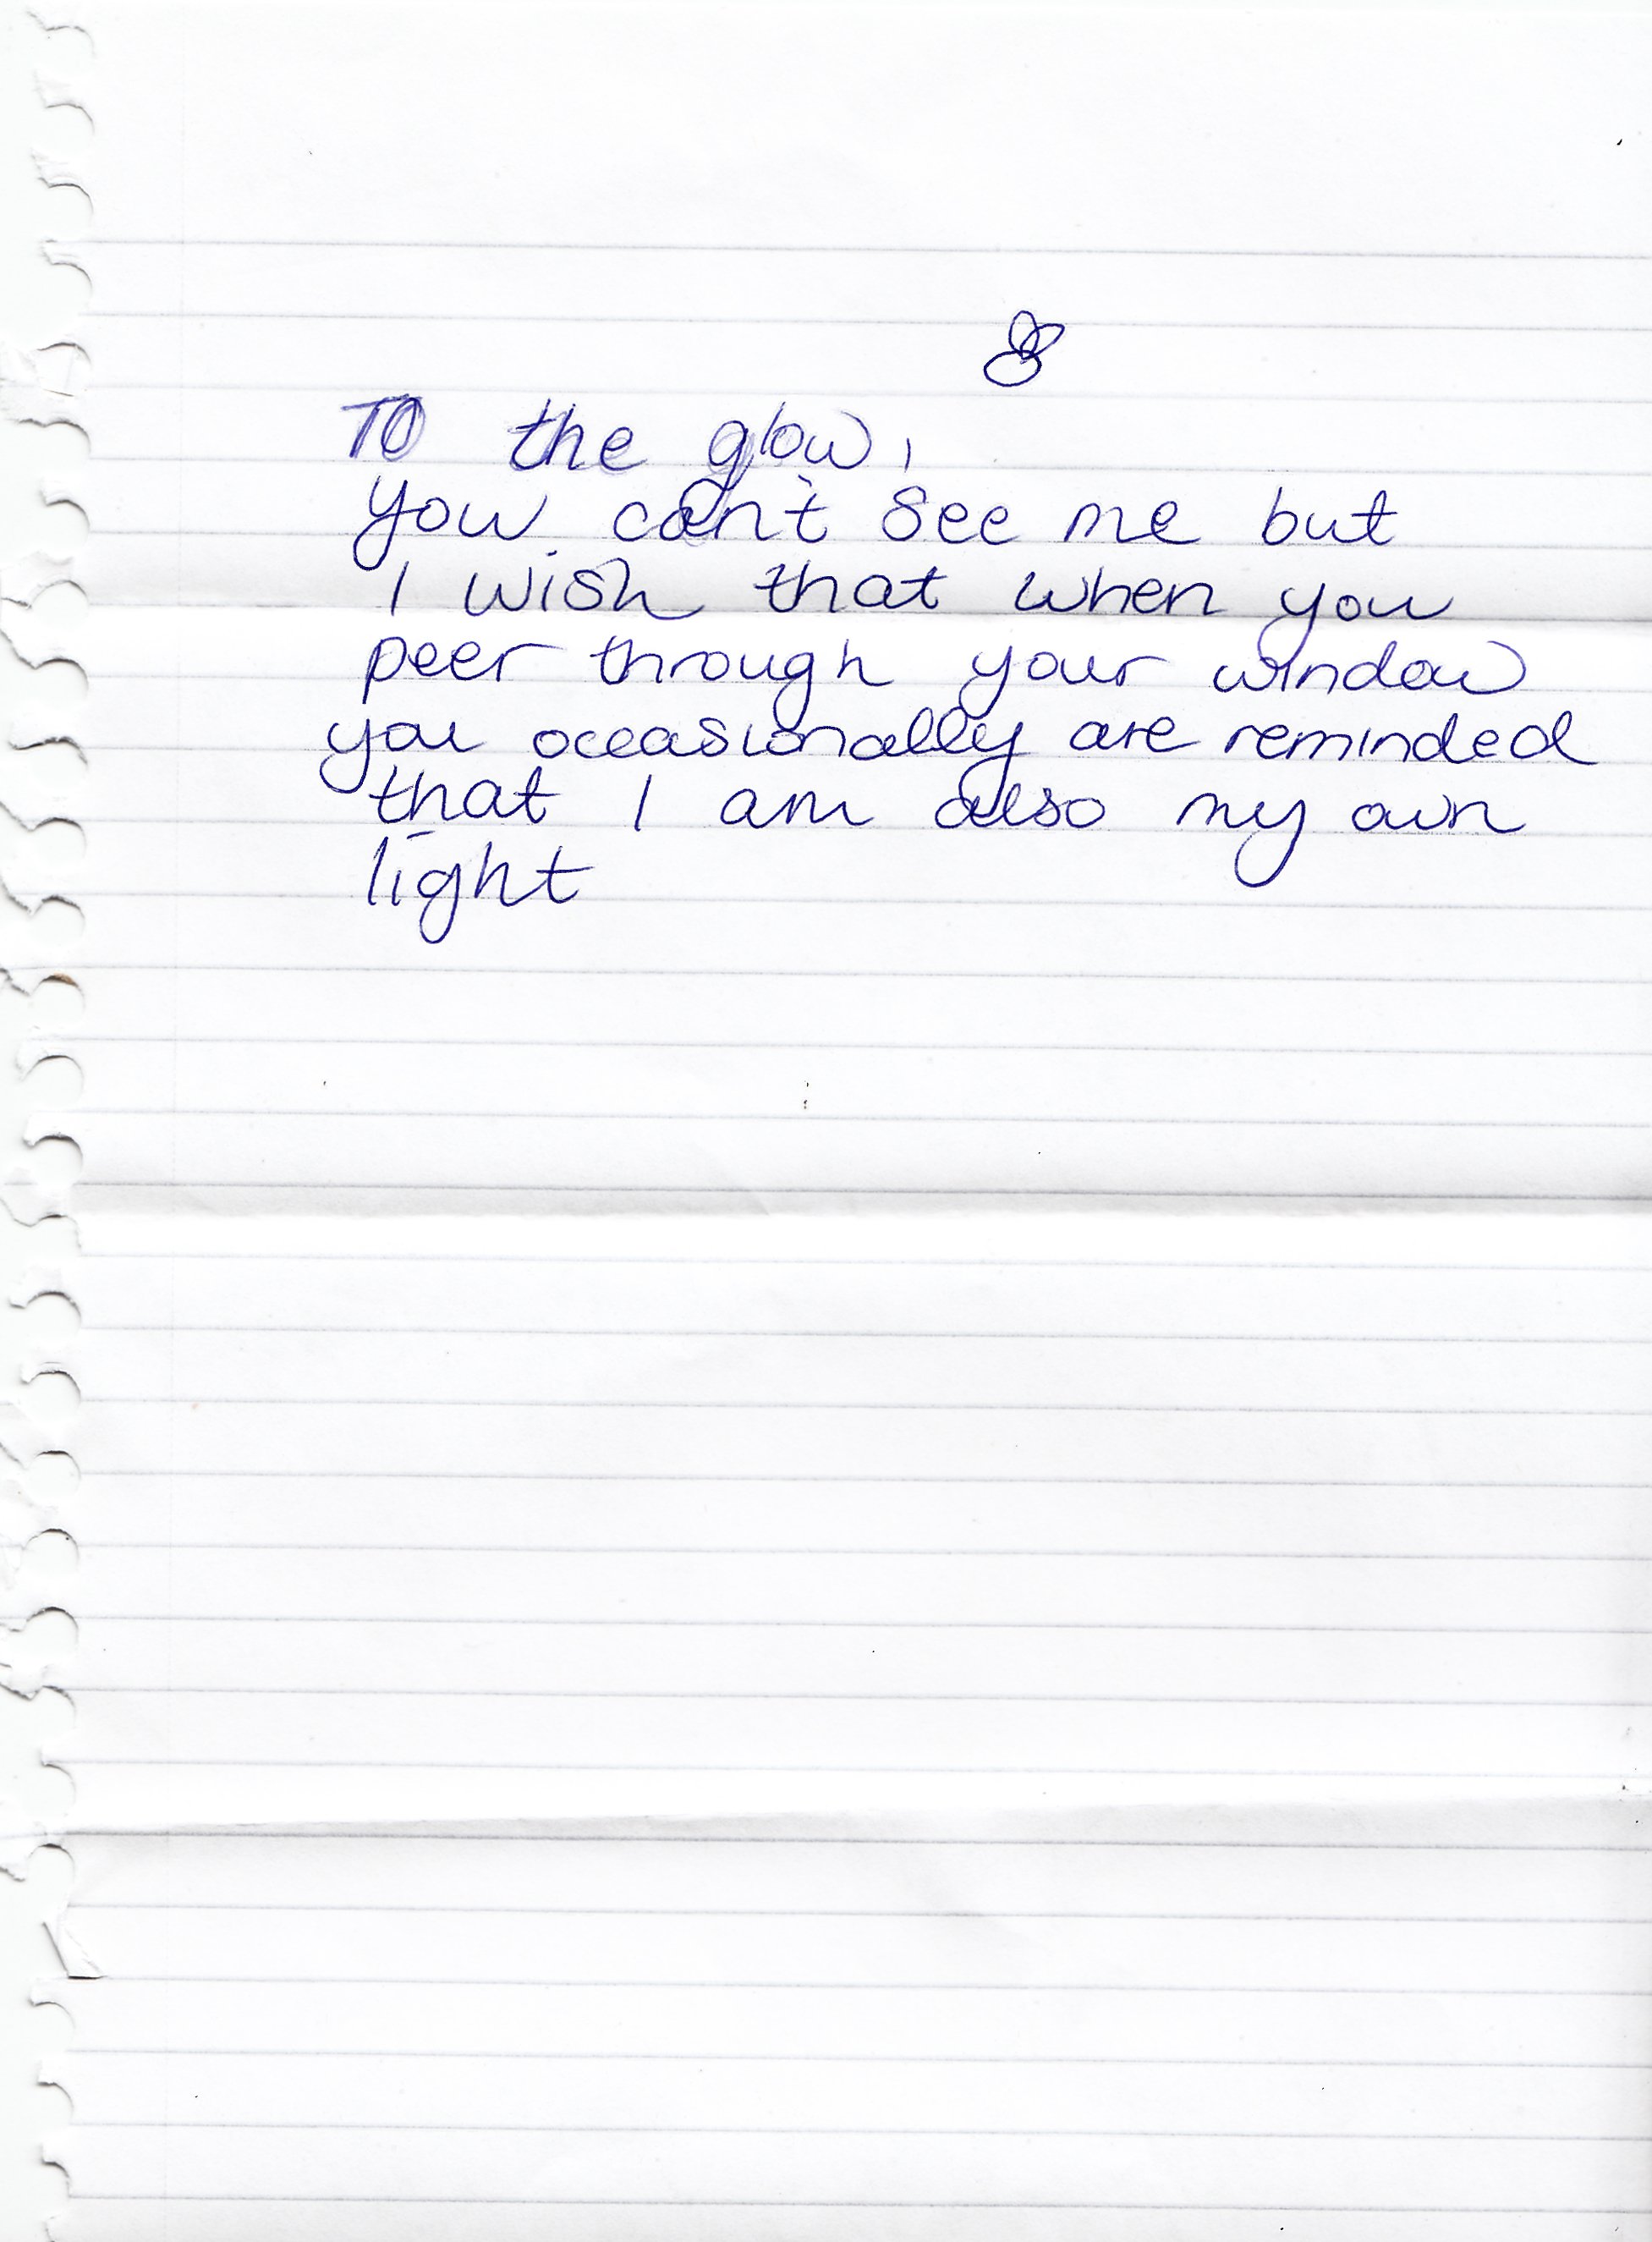 To the glow,
you can't see me but
I wish that when you
peer through your window
you occasionally are reminded
that I am also my own
light